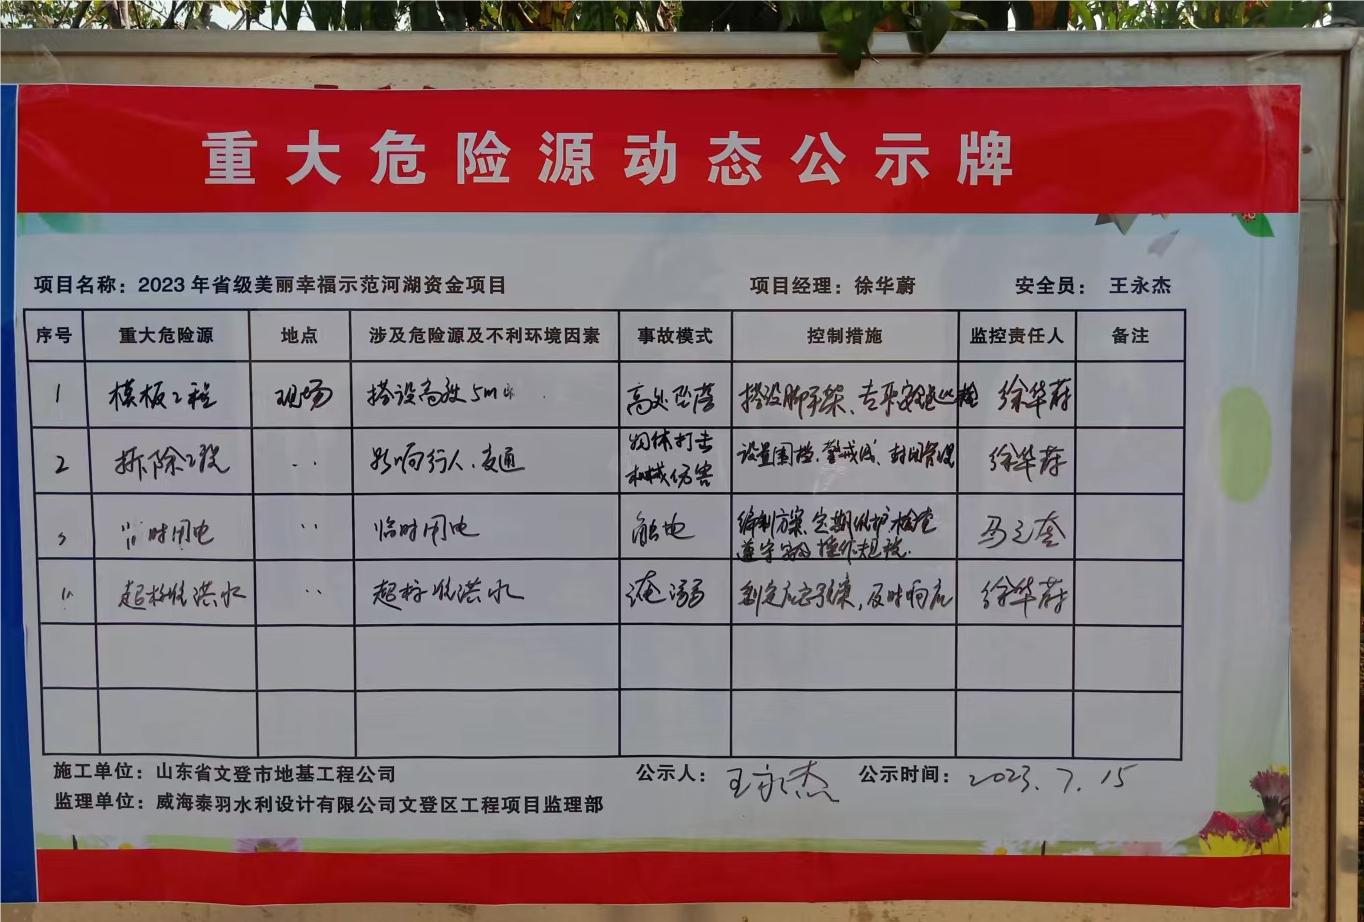 重大危险源动态公示牌
项目名称：2023年省级美丽幸福示范河湖资金项目 项目经理：徐华蔚 安全员：王永杰
序号 重大危险源 地点 涉及危险源及不利环境因素 事故模式 控制措施 监控责任人 备注
1 模板工程 现场 搭设高度5m 高处坠落 搭设脚手架、 徐华蔚
2 拆除工程 影响行人、交通 物体打击 机械伤害 设置围挡、警戒线、封闭管理 徐华蔚
3 临时用电 临时用电 触电 编制方案、定期维护检查 遵守 操作规程
超标准洪水 超标准洪水 淹溺 制定应急预案，及时响应 徐华蔚
施工单位：山东省文登市地基工程公司 公示人：王永杰 公示时间：2023.7.15
监理单位：威海泰羽水利设计有限公司文登区工程项目监理部